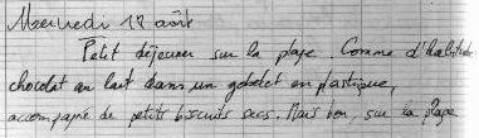 Mercredi 18 août
Petit déjeuner sur la plage. Comme d'habitude
chocolat au lait dans un gobelet en plastique,
accompagné de petits biscuits secs. Mais bon, sur la plage